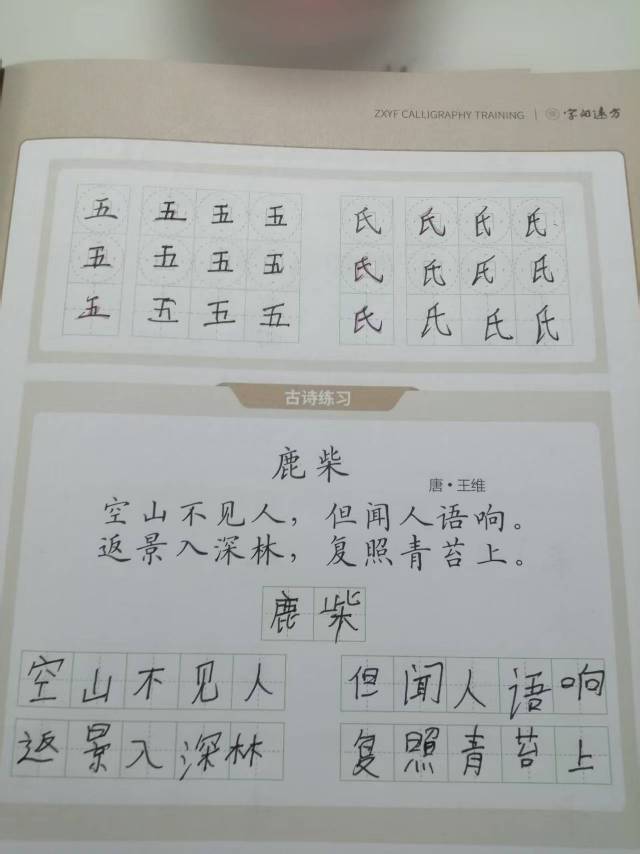 ZXYF CALLIGRAPHY TRAINING | 字如远方
五 五 五 五 氏 氏 氏 氏
五 五 五 五 氏 氏 氏 氏
五 五 五 五 氏 氏 氏 氏
古诗练习
鹿柴
唐·王维
空山不见人，但闻人语响。
返景入深林，复照青苔上。
鹿柴
空山不见人 但闻人语响
返景入深林 复照青苔上